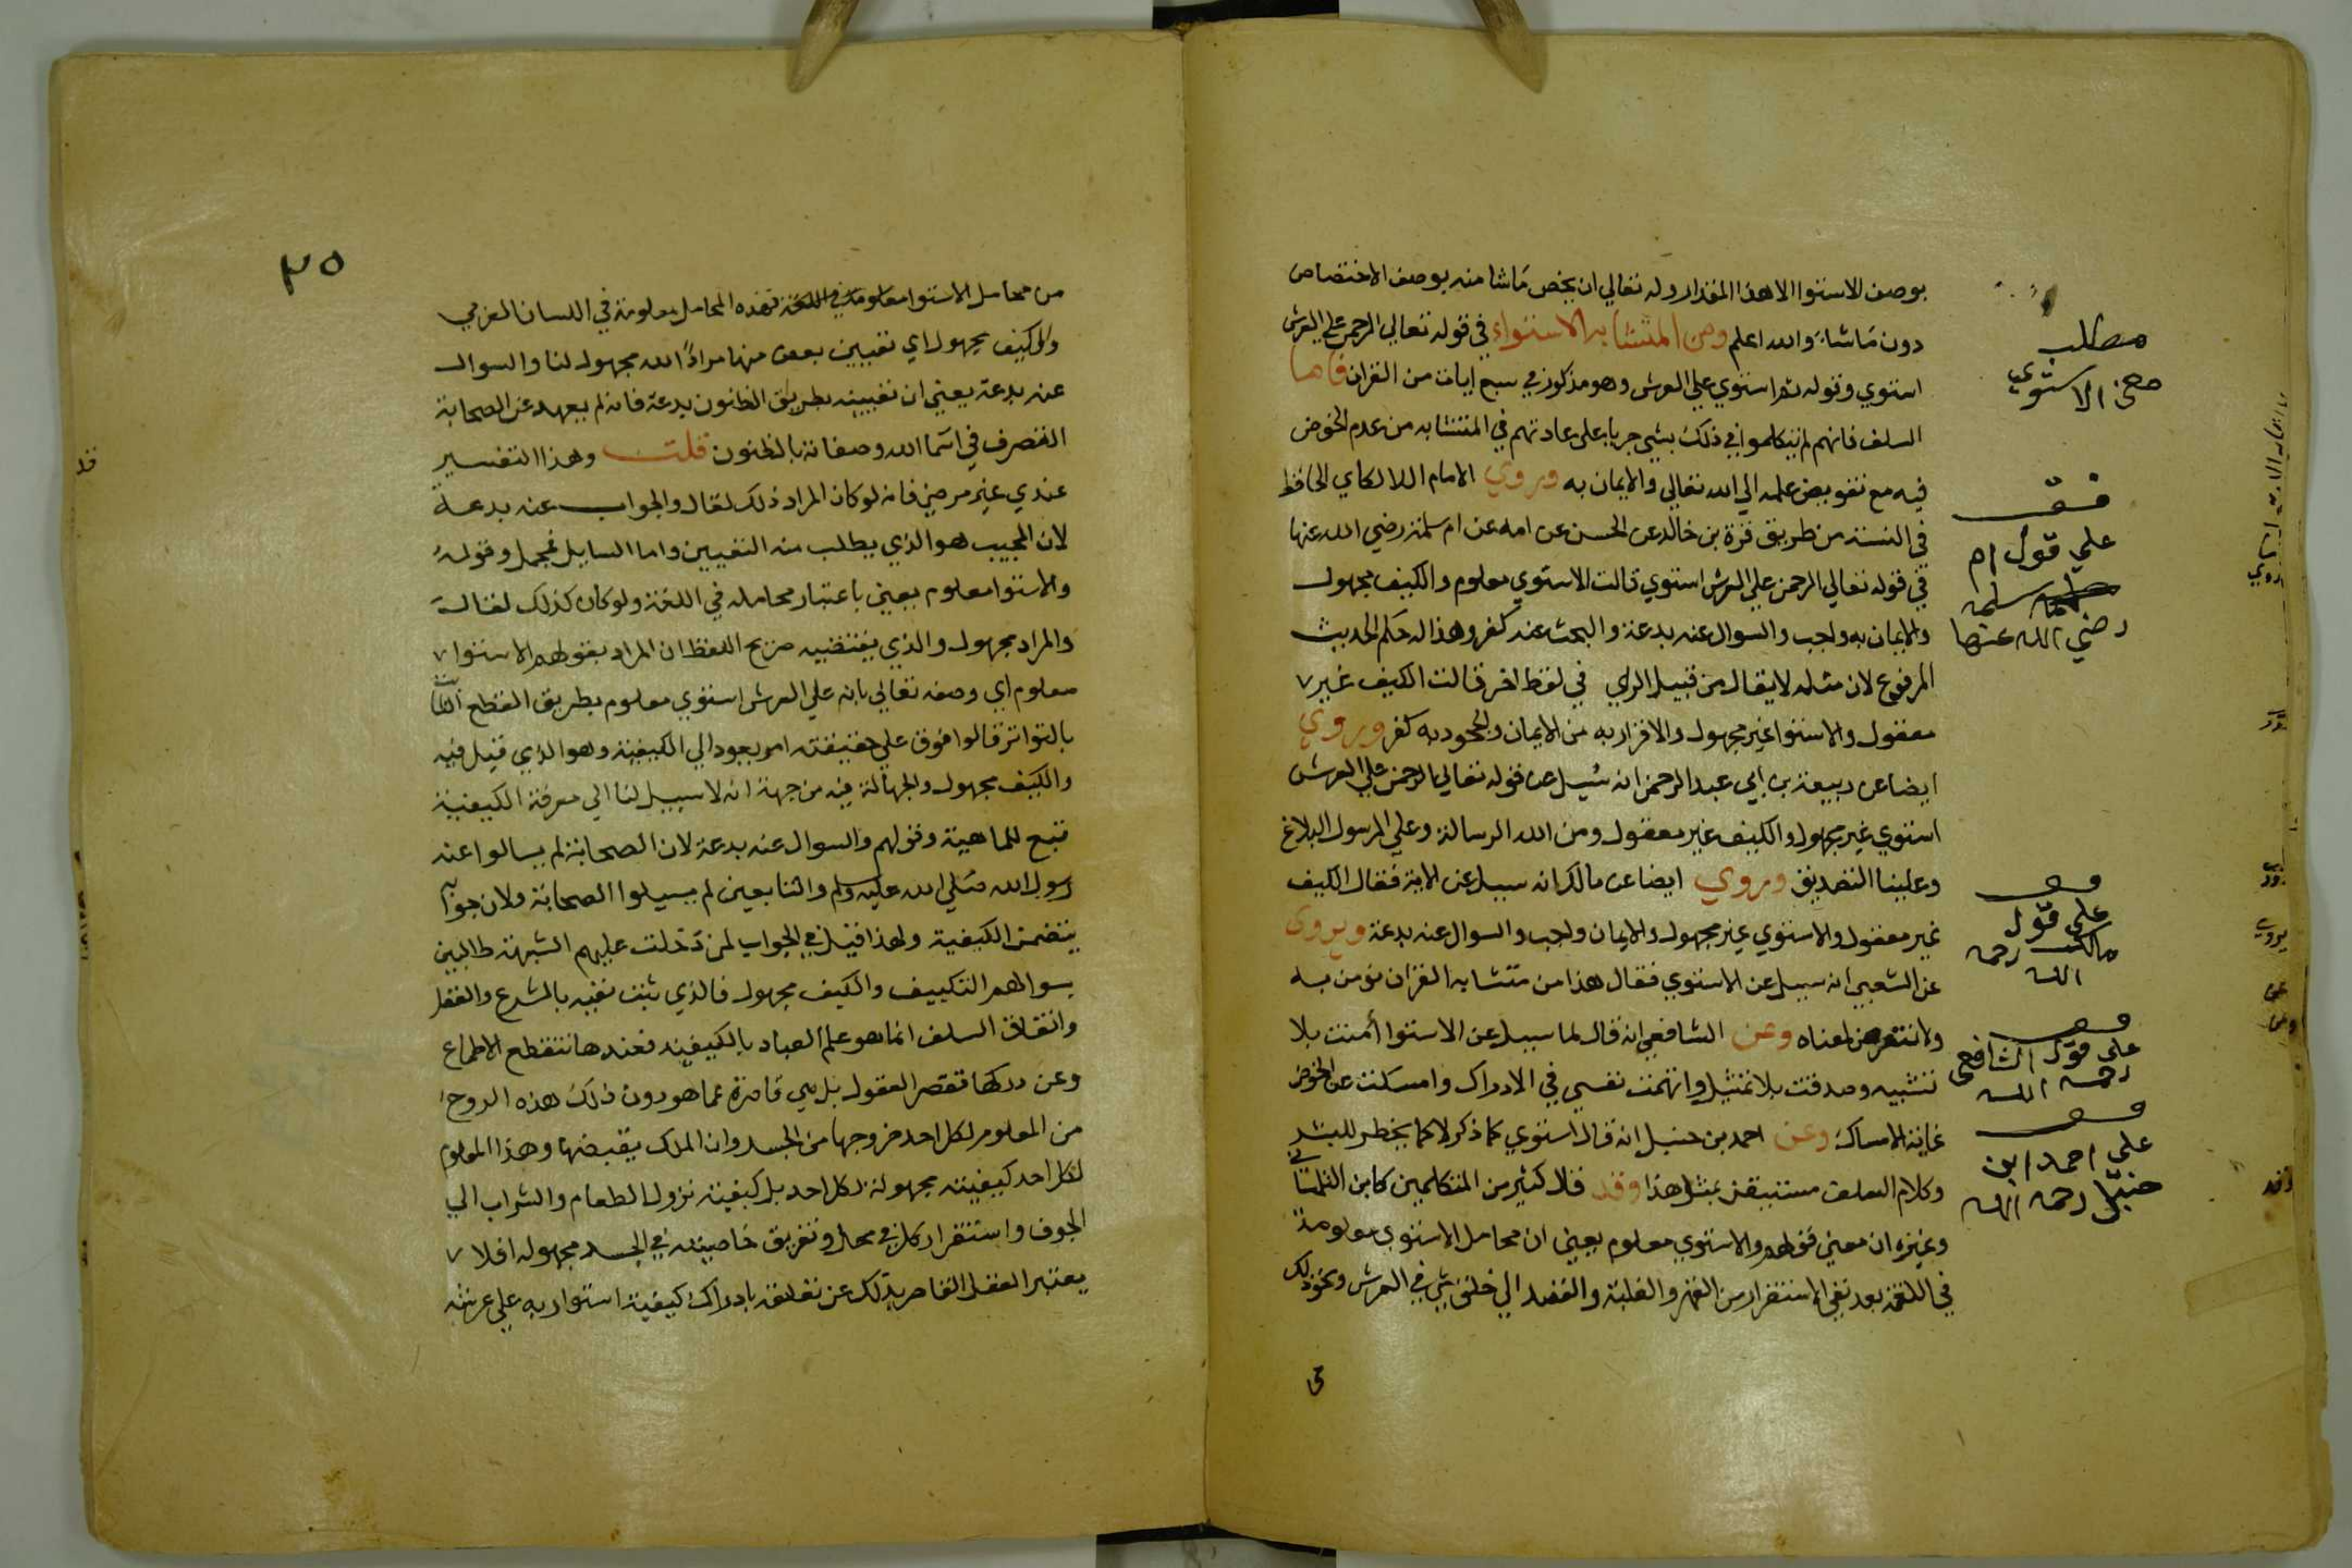 بوصف الاستوا الا هذا المقدار وله تعالي ان يخص ماشا منه بوصف الاختصاص
دون ماشاء والله اعلم ومن المتشابه الاستواء في قوله تعالي الرحمن علي العرش
استوي وقوله ثم استوي علي العرش وهو مذكور في سبع ايات من القران فاما
السلف فانهم لم يتكلموا في ذلك بشي جريا علي عادتهم في المتشابه من عدم الخوض
فيه مع تفويض علمه الي الله تعالي والايمان به وروي الامام اللالكاي الحافظ
في السنة من طريق قرة بن خالد عن الحسن عن امه عن ام سلمة رضي الله عنها
في قوله تعالي الرحمن علي العرش استوي قالت الاستوي معلوم والكيف مجهول
والايمان به واجب والسوال عنه بدعة والبحث عنه كفر وهذا له حكم الحديث
المرفوع لان مثله لا يقال من قبيل الراي في لفظ اخر قالت الكيف غير
معقول والاستوا غير مجهول والاقرار به من الايمان والجحود به كفر وروي
ايضا عن ربيعة بن ابي عبد الرحمن انه سيل عن قوله تعالي الرحمن علي العرش
استوي غير مجهول والكيف غير معقول ومن الله الرسالة وعلي الرسول البلاغ
وعلينا التصديق وروي ايضا عن مالك انه سيل عن الاية فقال الكيف
غير معقول والاستوي غير مجهول والايمان واجب والسوال عنه بدعة ويروي
عن الشعبي انه سيل عن الاستوي فقال هذا من متشابه القران نومن به
ولا نتعرض لمعناه وعن الشافعي انه قال لما سيل عن الاستوا أمنت بلا
تشبيه وصدقت بلا تمثيل واتهمت نفسي في الادراك وامسكت عن الخوض
غاية الامساك وعن احمد بن حنبل انه قال استوي كما ذكر لا كما يخطر للبشر
وكلام السلف مستفيض بمثل هذا وقد قال كثير من المتكلمين كابن التلمسا
ني
وغيره ان معني قولهم والاستوي معلوم يعني ان محامل الاستوي معلومة
في اللغة بعد نفي الاستقرار من القهر والغلبة والقصد الي خلق شي في العرش ونحو ذلك
مطلب
الاستوي
قف
علي قول ام
سلمه
رضي الله عنها
قف
علي قول
مالك رحمه
الله
قف
علي قول الشافعي
رحمه الله
قف
علي احمد ابن
حنبل رحمه الله
٣٥
من محامل الاستوا معلومات في اللغة فهذه المحامل معلومة في اللسان العربي
والكيف مجهول اي تعيين بعض منها مرادًا لله مجهول لنا والسوال
عنه بدعة يعني ان تعيينه بطريق الظنون بدعة فانه لم يعهد عن الصحابة
التصرف في اسما الله وصفاته بالظنون قلت وهذا التفسير
عندي غير مرضي فانه لو كان المراد ذلك لقال والجواب عنه بدعة
لان المجيب هو الذي يطلب منه التعيين واما السايل فمجمل وقوله
والاستوا معلوم يعني باعتبار محامله في اللغة ولو كان كذلك لقالت
والمراد مجهول والذي يقتضيه صريح اللفظ ان المراد بقولهم الاستوا
معلوم اي وصفه تعالي بانه علي العرش استوي معلوم بطريق القطع الثابت
بالتواتر قالوا فوق علي حقيقته امر يعود الي الكيفية وهو الذي قيل فيه
والكيف مجهول والجهالة فيه من جهة انه لا سبيل لنا الي معرفة الكيفية
تبع للماهية وقولهم والسوال عنه بدعة لان الصحابة لم يسالوا عنه
رسول الله صلي الله عليه وسلم والتابعين لم يسيلوا الصحابة ولان جوابه
يتضمن الكيفية ولهذا قيل في الجواب لمن دخلت عليهم الشبهة طالبين
بسوالهم التكييف والكيف مجهول فالذي ثبت نفيه بالشرع والعقل
واتفاق السلف انما هو علم العباد بالكيفية فعندها تنقطع الاطماع
وعن دركها تقصر العقول بل هي قاصرة عما هو دون ذلك هذه الروح
من المعلوم لكل احد خروجها من الجسد وان الملك يقبضها وهذا المعلوم
لكل احد كيفيته مجهولة لكل احد بل كيفية نزول الطعام والشراب الي
الجوف واستقرار كل في محل وتفريق خاصيته في الجسد مجهوله افلا
يعتبر العقل القاصر بذلك عن تعلقه بادراك كيفية استوا ربه علي عرشه